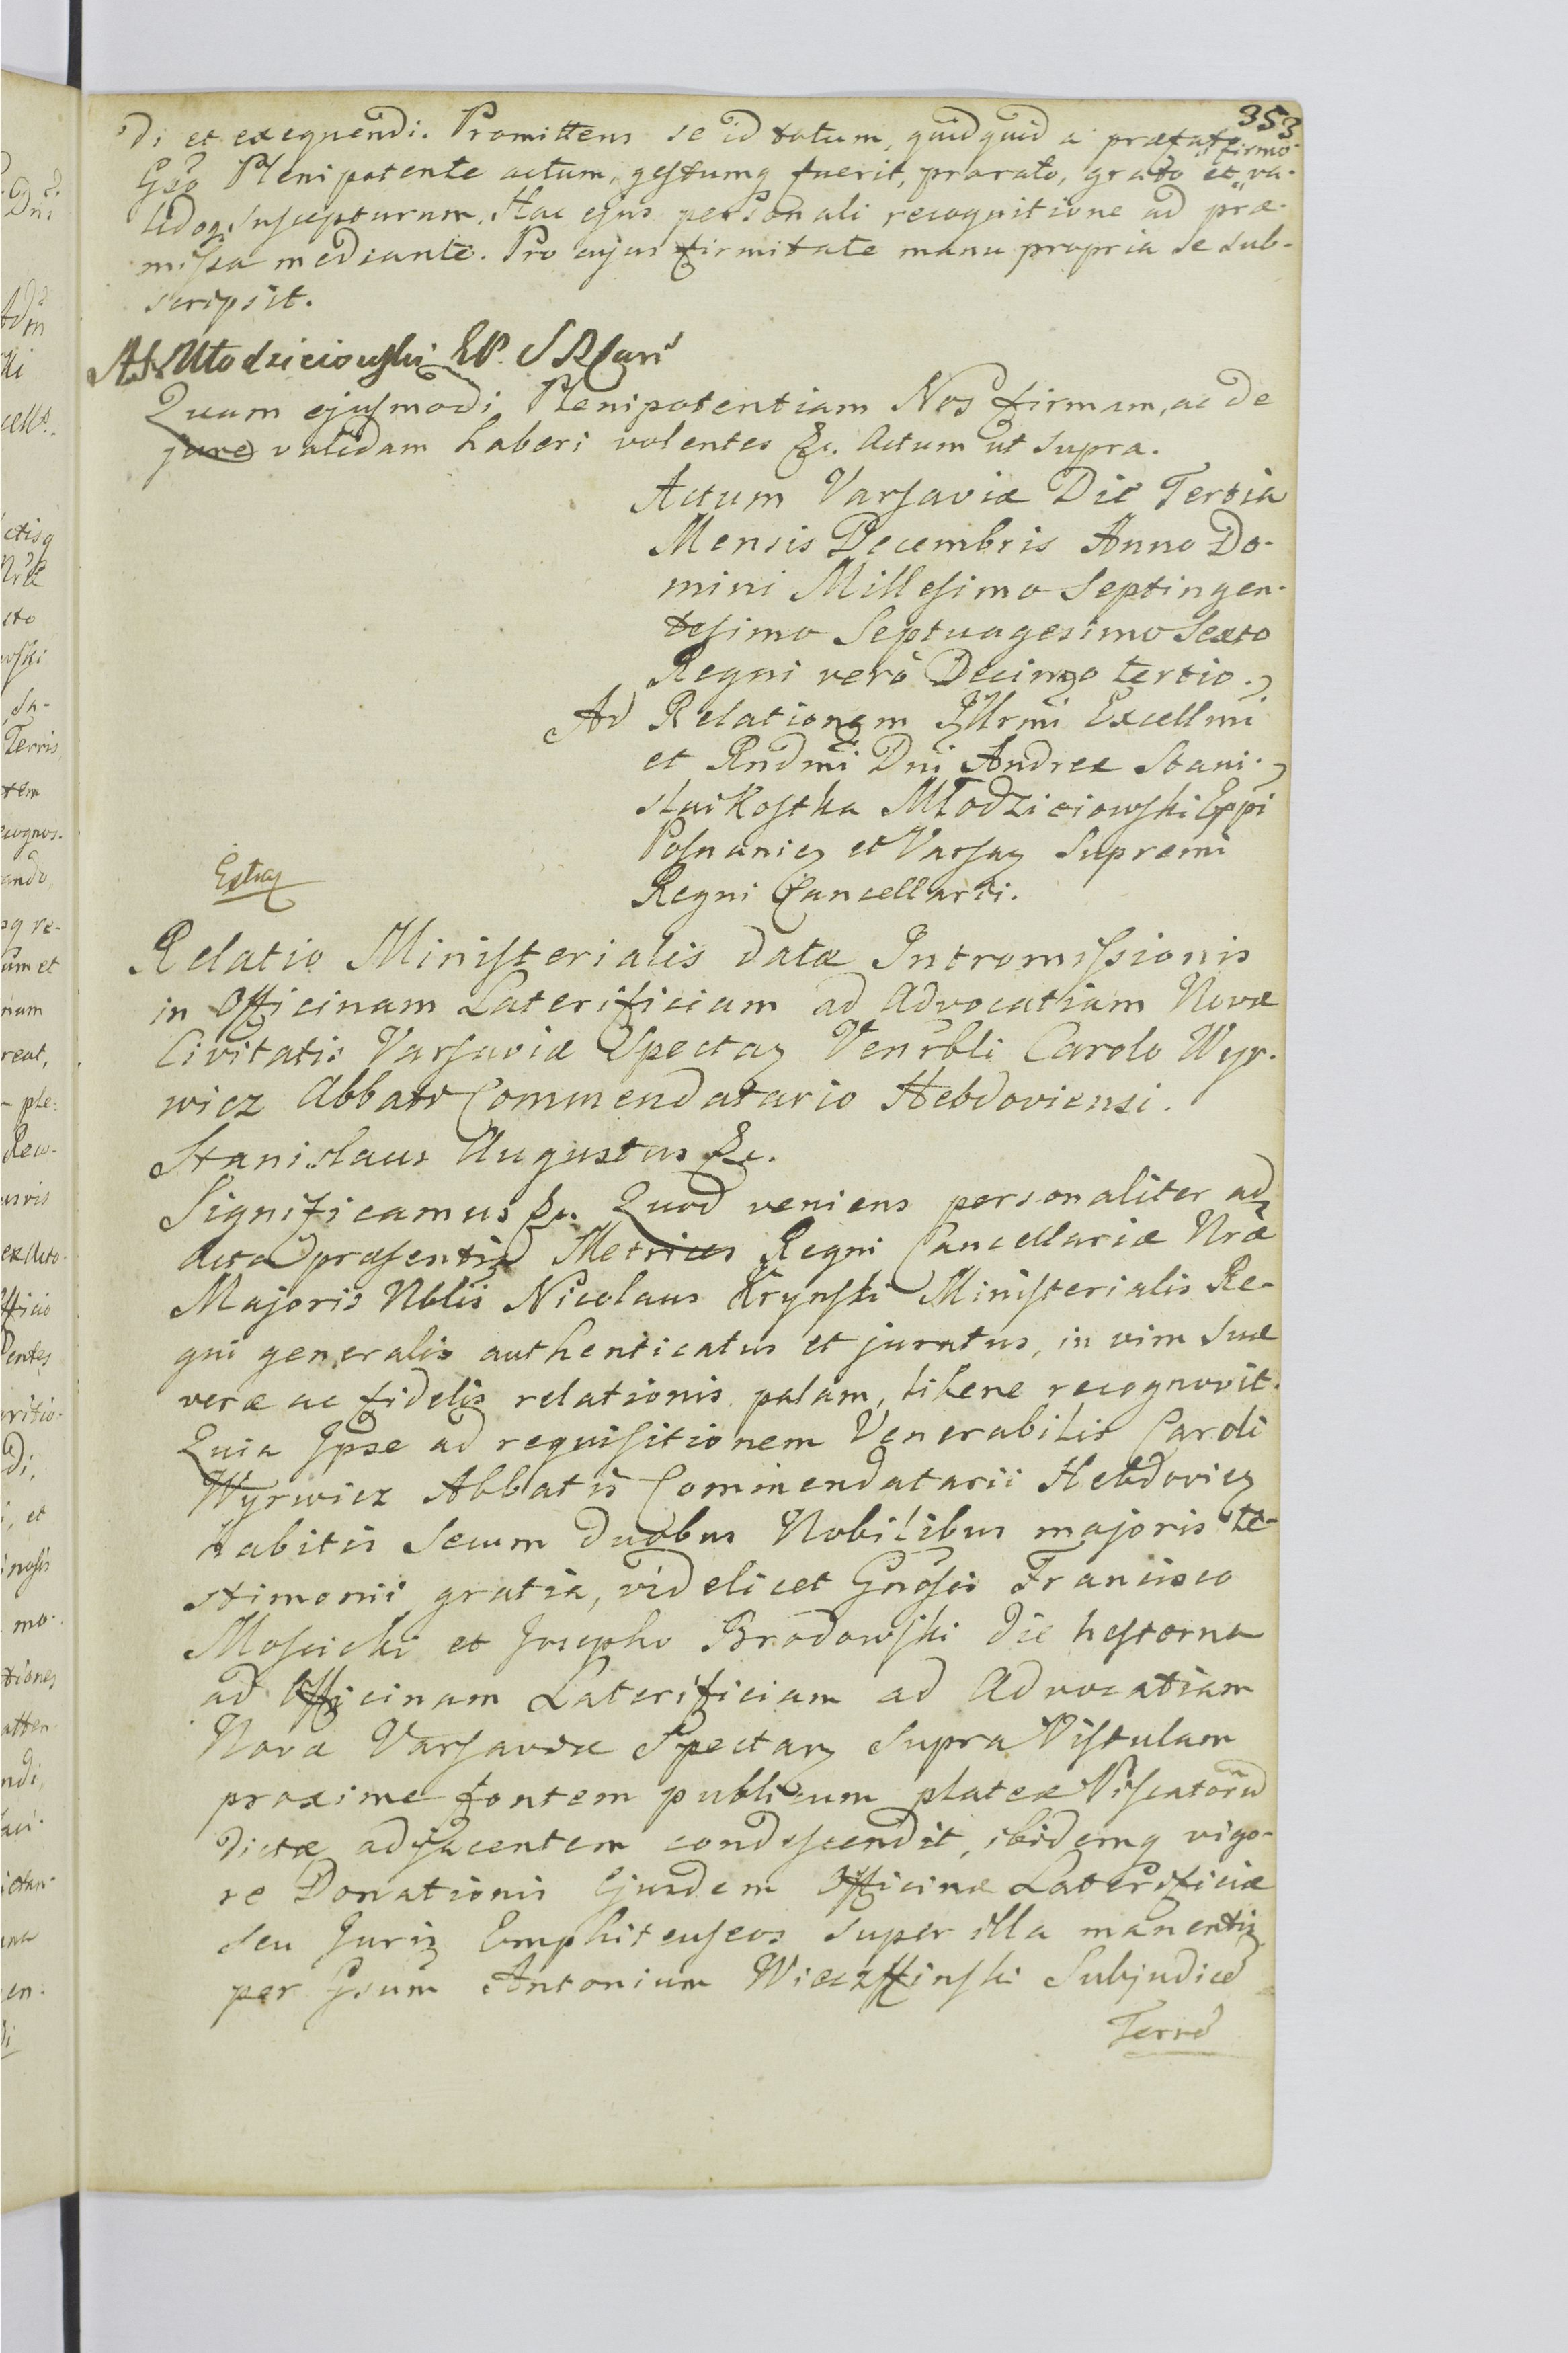 353
di et exequendi. Promittens se id totum, quidquid a præfato
Gso Plenipotente actum, gestumq fuerit, pro rato, grato et firmo va-
lidoq suscepturum. Hac ejus personali recognitione ad præ-
missa mediante. Pro cujus firmitate manu propria se sub-
scripsit.
Młodzieiowski EP. S R Can
Quam ejusmodi Plenipotentiam Nos firmam, ac de
jure validam haberi volentes &c. Actum ut supra.
Actum Varsaviæ Die Tertia
Mensis Decembris Anno Do-
mini Millesimo Septingen-
tesimo Septuagesimo Sexto
Regni verò Decimo tertio.
Ad Relationem Illrmi Excellmi
et Rndmi Dni Andreæ Stani-
slai Kostka Młodzieiowski Eppi
Posnanien et Varsav Supremi
Regni Cancellarii.
Relatio Ministerialis datæ Intromissionis
in Officinam Laterificiam ad Advocatiam Novæ
Civitatis Varsaviæ Spectan Venrbli Carolo Wyr-
wicz Abbati Commendatario Hebdoviensi.
Stanislaus Augustus &c.
Significamus &c. Quod veniens personaliter ad
Acta præsentia Metrices Regni Cancellariæ Nræ
Majoris Nblis Nicolaus Krynski Ministerialis Re-
gni generalis authenticatus et juratus, in vim suæ
veræ ac fidelis relationis palam, libere recognovit.
Quia Ipse ad requisitionem Venerabilis Caroli
Wyrwicz Abbatis Commendatarii Hebdovien
habitis secum duobus Nobilibus majoris te-
stimonii gratia, videlicet Gnosis Francisco
Moscicki et Josepho Brodowski die hesterna
ad Officinam Laterificiam ad Advocatiam
Novæ Varsaviæ Spectan supra Vistulam
proxime fontem publicum plateæ Piscatorũ
dictæ adjacentem condescendit, ibidemq vigo-
re Donationis Ejusdem Officinæ Laterificiæ
seu Juris Emphiteuseos super illa manentis
per Gsum Antonium Subjudicẽ
Terrẽ